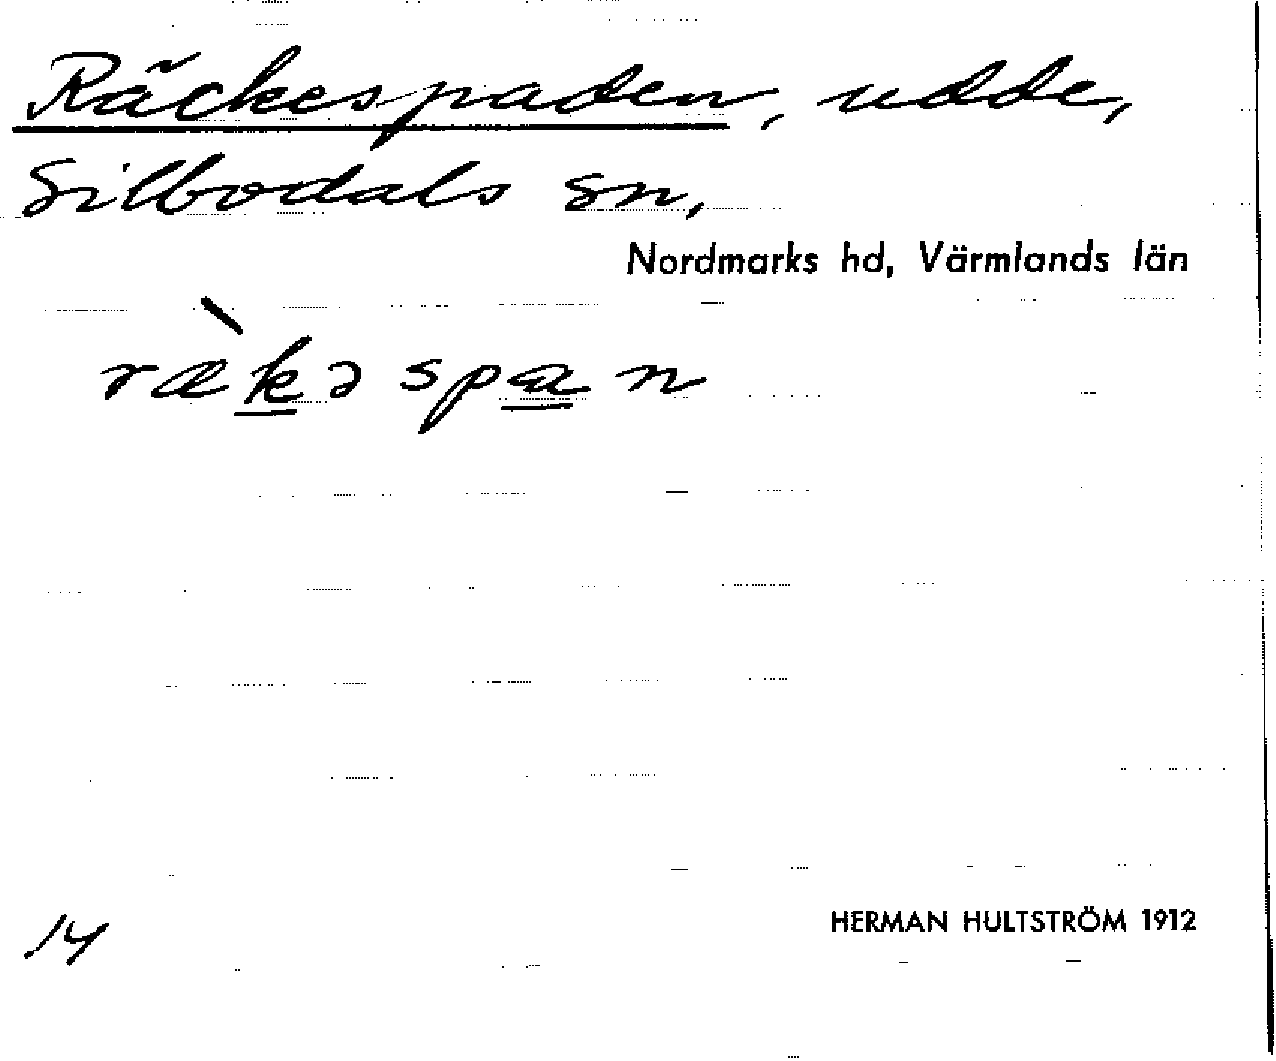 Räckespaden, udde,
Silbodals sn,
Nordmarks hd, Värmlands län
ræ̀kəspan
14
HERMAN HULTSTRÖM 1912